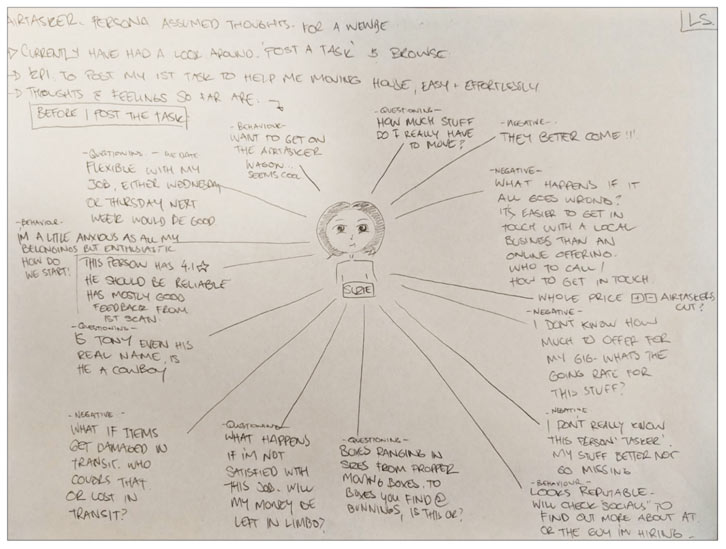 AIRTASKER. PERSONA ASSUMED THOUGHTS. FOR A NEWBE
LS.
CURRENTLY HAVE HAD A LOOK AROUND. 'POST A TASK' & BROWSE
KPI. TO POST MY 1ST TASK TO HELP ME MOVING HOUSE, EASY + EFFORTLESSLY
THOUGHTS & FEELINGS SO FAR ARE.
BEFORE I POST THE TASK
- BEHAVIOUR -
WANT TO GET ON
THE AIRTASKER
WAGON...
SEEMS COOL
- QUESTIONING -
HOW MUCH STUFF
DO I REALLY HAVE
TO MOVE?
- NEGATIVE -
THEY BETER COME !!
- QUESTIONING - RE DATE
FLEXIBLE WITH MY
JOB, EITHER WEDNESDAY
OR THURSDAY NEXT
WEEK WOULD BE GOOD
- NEGATIVE -
WHAT HAPPENS IF IT
ALL GOES WRONG?
IT'S EASIER TO GET IN
TOUCH WITH A LOCAL
BUSINESS THAN AN
ONLINE OFFERING.
WHO TO CALL /
HOW TO GET IN TOUCH.
- BEHAVIOUR -
I'M A LITLE ANXIOUS AS ALL MY
BELONGINGS BUT ENTHUSIASTIC
HOW DO
WE START!
THIS PERSON HAS 4.1☆
HE SHOULD BE RELIABLE
HAS MOSTLY GOOD
FEEDBACK FROM
1ST SCAN.
SUZIE
WHOLE PRICE + - AIRTASKERS
CUT?
- QUESTIONING -
IS TONY EVEN HIS
REAL NAME, IS
HE A COWBOY
- NEGATIVE -
I DON'T KNOW HOW
MUCH TO OFFER FOR
MY GIG - WHATS THE
GOING RATE FOR
THIS STUFF?
- NEGATIVE -
WHAT IF ITEMS
GET DAMAGED IN
TRANSIT. WHO
COVERS THAT
OR LOST IN
TRANSIT?
- QUESTIONING -
WHAT HAPPENS
IF I'M NOT
SATISFIED WITH
THIS JOB. WILL
MY MONEY BE
LEFT IN LIMBO?
- QUESTIONING -
BOXES RANGING IN
SIZES FROM PROPPER
MOVING BOXES. TO
BOXES YOU FIND @
BUNNINGS, IS THIS OK?
- NEGATIVE
I DON'T REALLY KNOW
THIS PERSON 'TASKER'.
MY STUFF BETTER NOT
GO MISSING
- BEHAVIOUR -
LOOKS REPUTABLE -
WILL CHECK 'SOCIALS' TO
FIND OUT MORE ABOUT AT
OR THE GUY I'M HIRING -